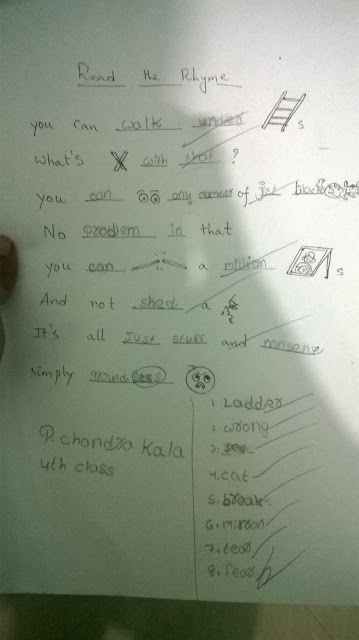 Read the Rhyme
you can walk under s
What's X with that ?
you can any number of jet black
No problem in that
you can a million s
And not shed a
It's all Just stuff and nonsense
simply groundless
P. chandra Kala
4th class
1. Ladder
2. wrong
3. see
4. cat
5. break
6. mirror
7. tear
8. fear